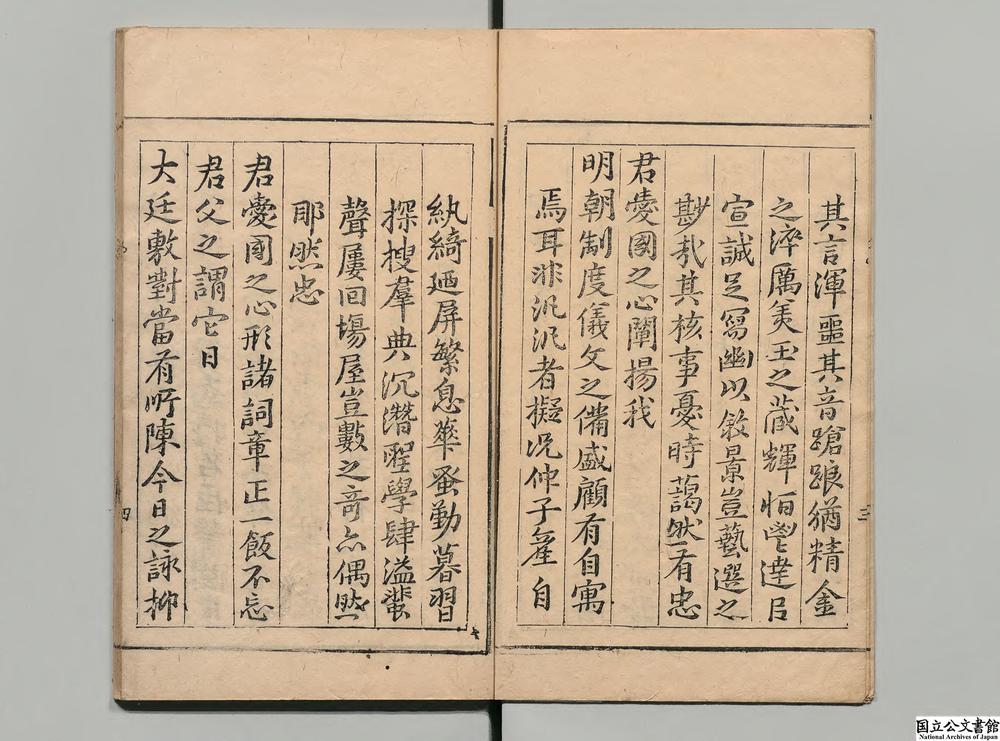 其言渾噩其音蹌踉猶精金
之淬厲美玉之葳輝怕鬯達㠯
宣誠足冩幽以敘景豈藝選之
尠哉其核事憂時藹然有忠
君愛國之心闡揚我
明朝制度儀文之備盛顧有自寓
焉耳非汎汎者擬況仲子産自
紈綺迺屏繁息華蚤勤暮習
探搜羣典沉潛聖學肆溢蜚
聲屢囘塲屋豈數之竒亦偶然
耶然忠
君愛國之心形諸詞章正一飯不忘
君父之謂它日
大廷敷對當有所陳今日之詠抑
三
四
国立公文書館
National Archives of Japan